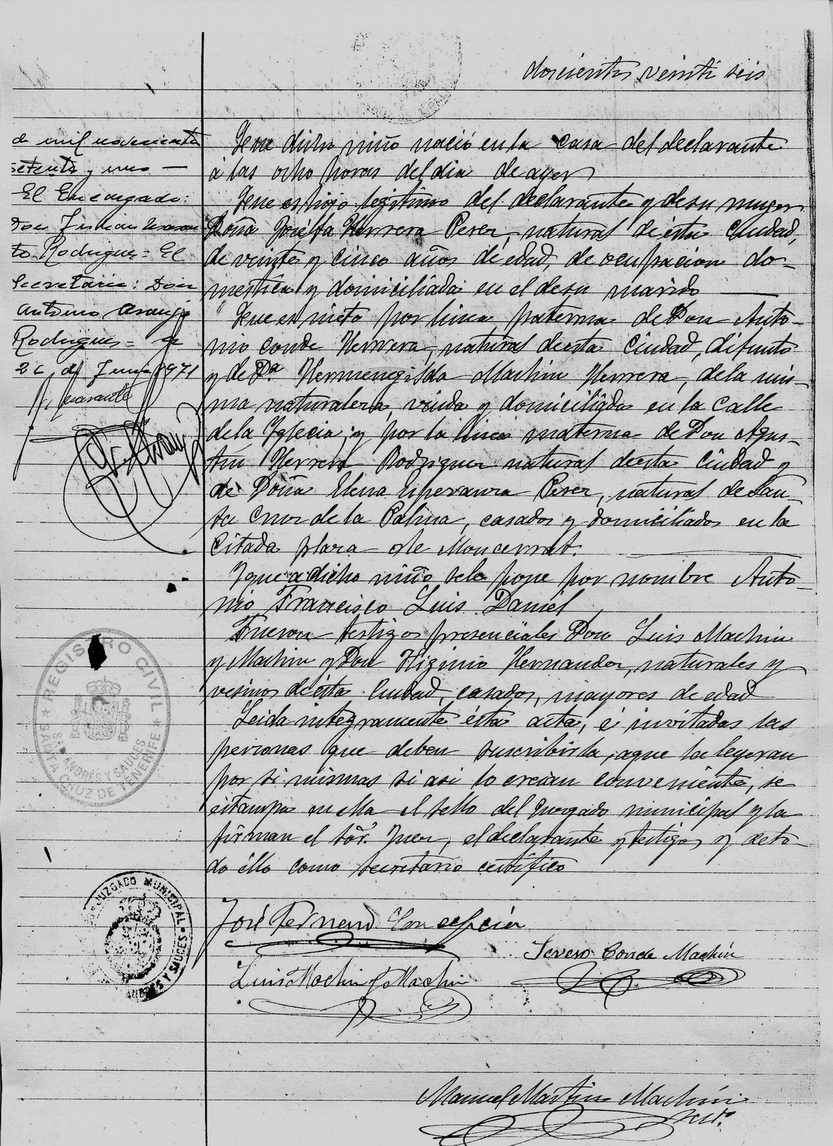 doscientos veinti seis
de mil novecientos
setenta y uno —
El Encargado:
Rodriguez = El
Secretario: Don
Antonio Araujo
Rodriguez =
26 de Junio 1971
Que dicho niño nació en la casa del declarante
a las ocho horas del dia de ayer
Que es hijo legitimo del declarante y de su mujer
Doña Josefa Herrera Perez, natural de ésta Ciudad,
de veinte y cinco años de edad, de ocupacion do-
mestica y domiciliada en el de su marido
Que es nieto por linea paterna de Don Anto-
nio Conde Herrera, natural de esta Ciudad, difunto
y de Dª Hermenegilda Machin Herrera, de la mis-
ma naturaleza, viuda y domiciliada en la calle
de la Iglesia; y por la linea materna de Don Agus-
tin Herrera Rodriguez natural de esta Ciudad y
de Doña Elena Esperanza Perez, natural de San-
ta Cruz de la Palma, casados y domiciliados en la
citada plaza de Moncerrat.
Y que a dicho niño se le pone por nombre Anto-
nio Francisco Luis Daniel,
Fueron testigos presenciales Don Luis Machin
y Machin y Don Higinio Hernandez, naturales y
vesinos de ésta Ciudad, casados, mayores de edad
Leida integramente ésta acta, é invitadas las
personas que deben suscribirla, a que la leyeran
por si mismas si asi lo creian conveniente, se
estampa en ella el sello del Juzgado municipal y la
firman el Sor. Juez, el declarante y testigos y de to-
do éllo como secretario certifico
REGISTRO CIVIL
S. ANDRÉS Y SAUCES
SANTA CRUZ DE TENERIFE
JUZGADO MUNICIPAL
ANDRÉS Y SAUCES
José Fernand Concepción
Severo Conde Machin
Luis Machin y Machin
Manuel Martin Machin